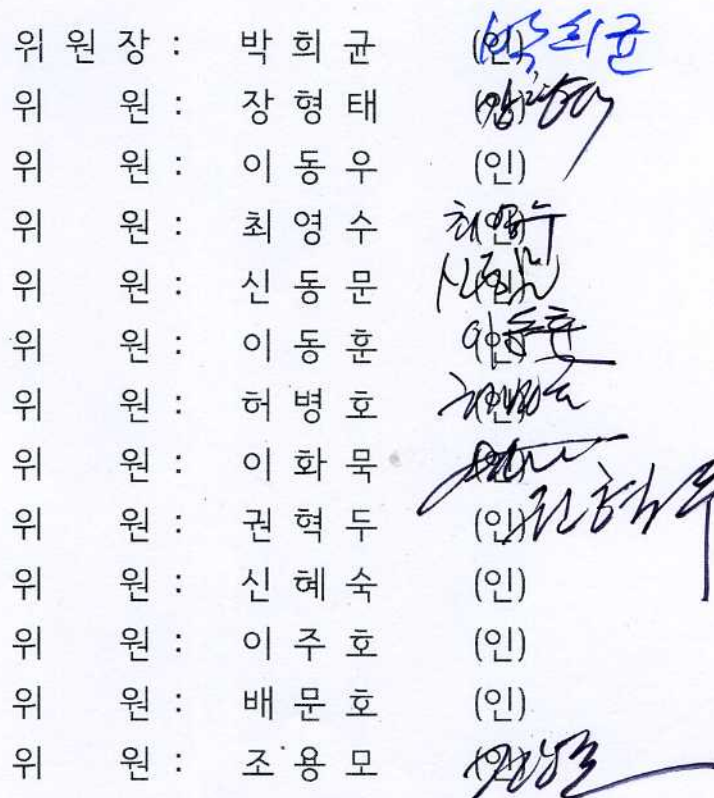 위 원 장 : 박 희 균 (인) 박희균
위 원 : 장 형 태 (인)
위 원 : 이 동 우 (인)
위 원 : 최 영 수 (인) 최영수
위 원 : 신 동 문 (인)
위 원 : 이 동 훈 (인) 이동훈
위 원 : 허 병 호 (인)
위 원 : 이 화 묵 (인)
위 원 : 권 혁 두 (인) 권혁두
위 원 : 신 혜 숙 (인)
위 원 : 이 주 호 (인)
위 원 : 배 문 호 (인)
위 원 : 조 용 모 (인)